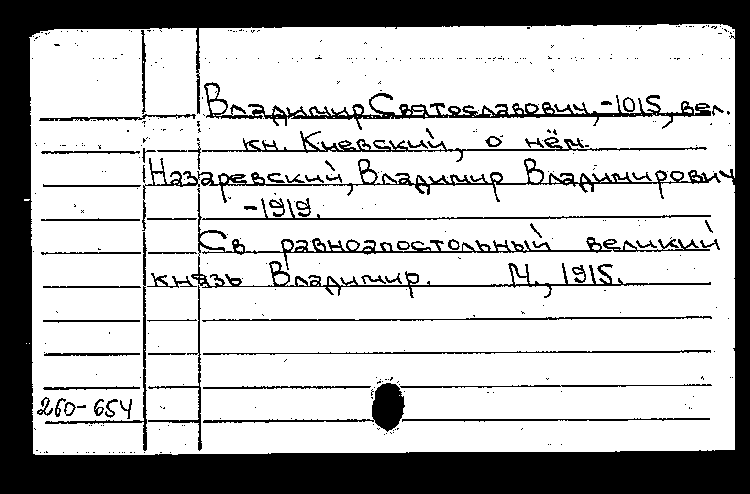 Владимир Святославович, -1015, вел.
кн. Киевский, о нём.
Назаревский, Владимир Владимирович
-1919.
Св. равноапостольный великий
князь Владимир. М., 1915.
260-654